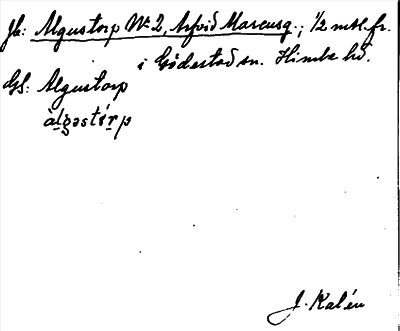 Jb: Algustorp No 2, Arfvid Marcusg.; 1/2 mtl. fr.
i Gödestad sn. Himle hd.
Gf: Algustorp
àlgəstórp
J. Kalén